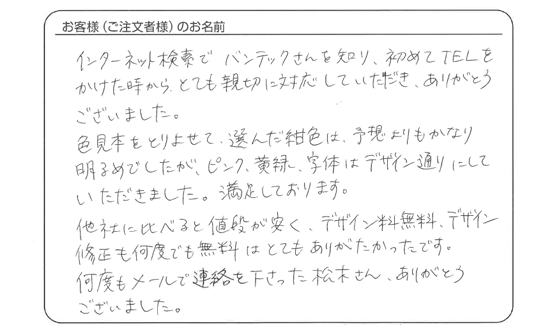 お客様（ご注文者様）のお名前
インターネット検索で バンテックさんを知り、初めてTELを
かけた時から、とても親切に対応していただき、ありがとう
ございました。
色見本をとりよせて、選んだ紺色は、予想よりもかなり
明るめでしたが、ピンク、黄緑、字体はデザイン通りにして
いただきました。満足しております。
他社に比べると値段が安く、デザイン料無料、デザイン
修正も何度でも無料はとてもありがたかったです。
何度もメールで連絡を下さった松木さん、ありがとう
ございました。